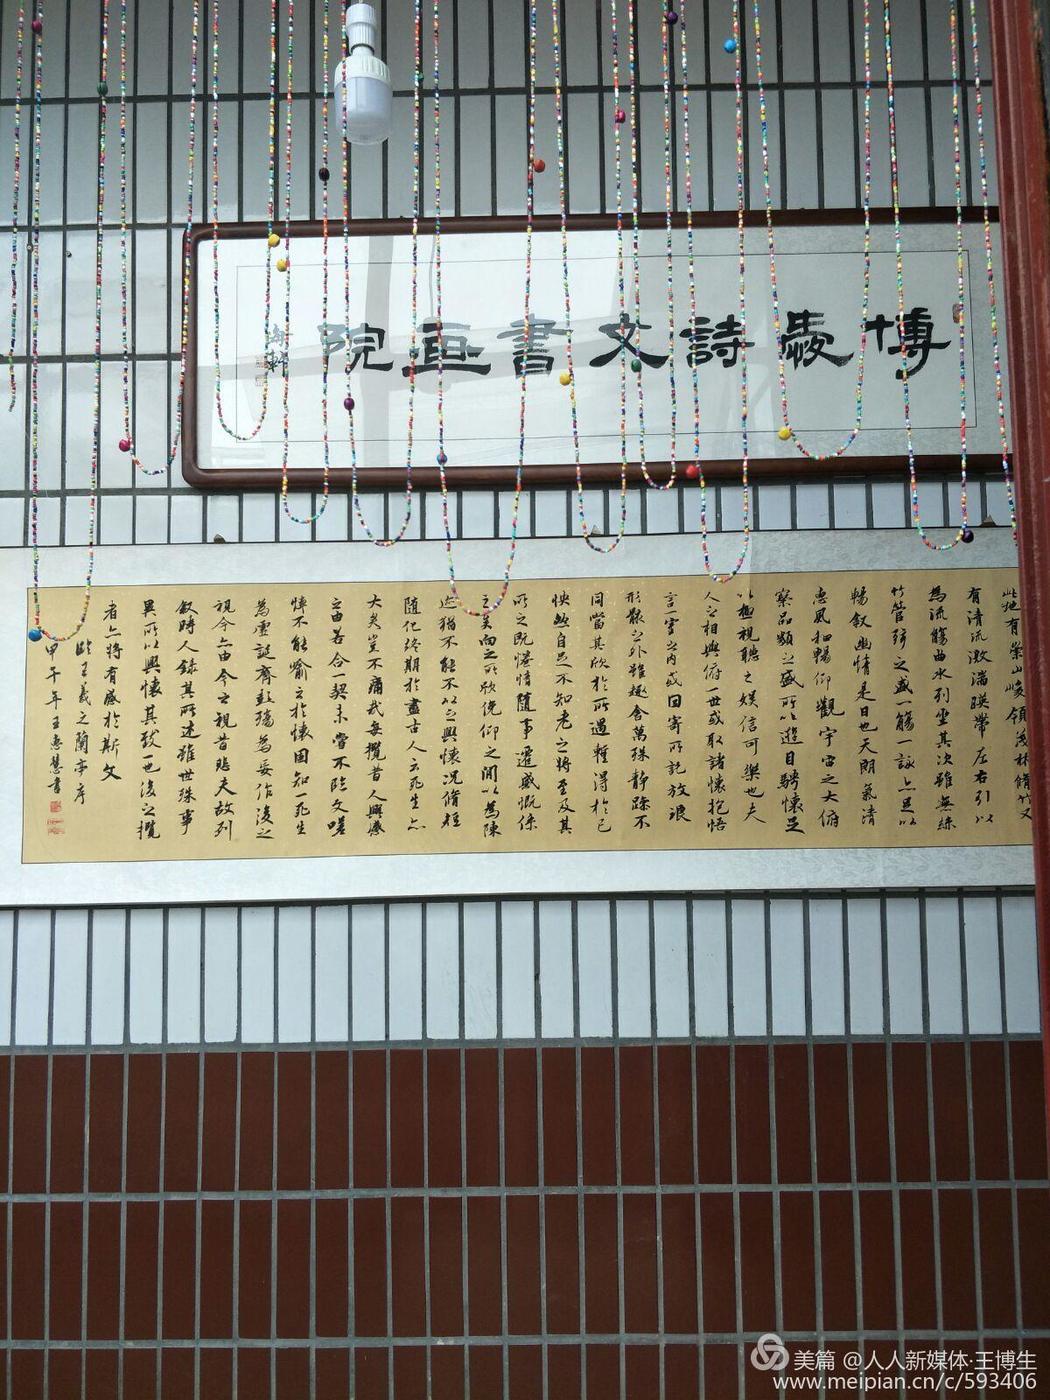 博詩文書画院
此地有崇山峻領茂林脩竹又
有清流激湍暎帶左右引以
為流觴曲水列坐其次雖無絲
竹管弦之盛一觴一詠亦足以
暢叙幽情是日也天朗氣清
惠風和暢仰觀宇宙之大俯
察品類之盛所以遊目騁懷足
以極視聽之娛信可樂也夫
人之相與俯一世或取諸懷抱悟
言一室之內或因寄所託放浪
形骸之外雖趣舍萬殊靜躁不
同當其欣於所遇暫得於己
怏然自足不知老之將至及其
所之既惓情隨事遷感慨係
之矣向之所欣俛仰之間以為陳
迹猶不能不以之興懷況脩短
隨化終期於盡古人云死生亦
大矣豈不痛哉每攬昔人興感
之由若合一契未嘗不臨文嗟
悼不能喻之於懷固知一死生
為虛誕齊彭殤為妄作後之
視今亦由今之視昔悲夫故列
叙時人錄其所述雖世殊事
異所以興懷其致一也後之攬
者亦將有感於斯文
臨王羲之蘭亭序
甲午年王惠慧書
美篇 @人人新媒体·王博生
www.meipian.cn/c/593406